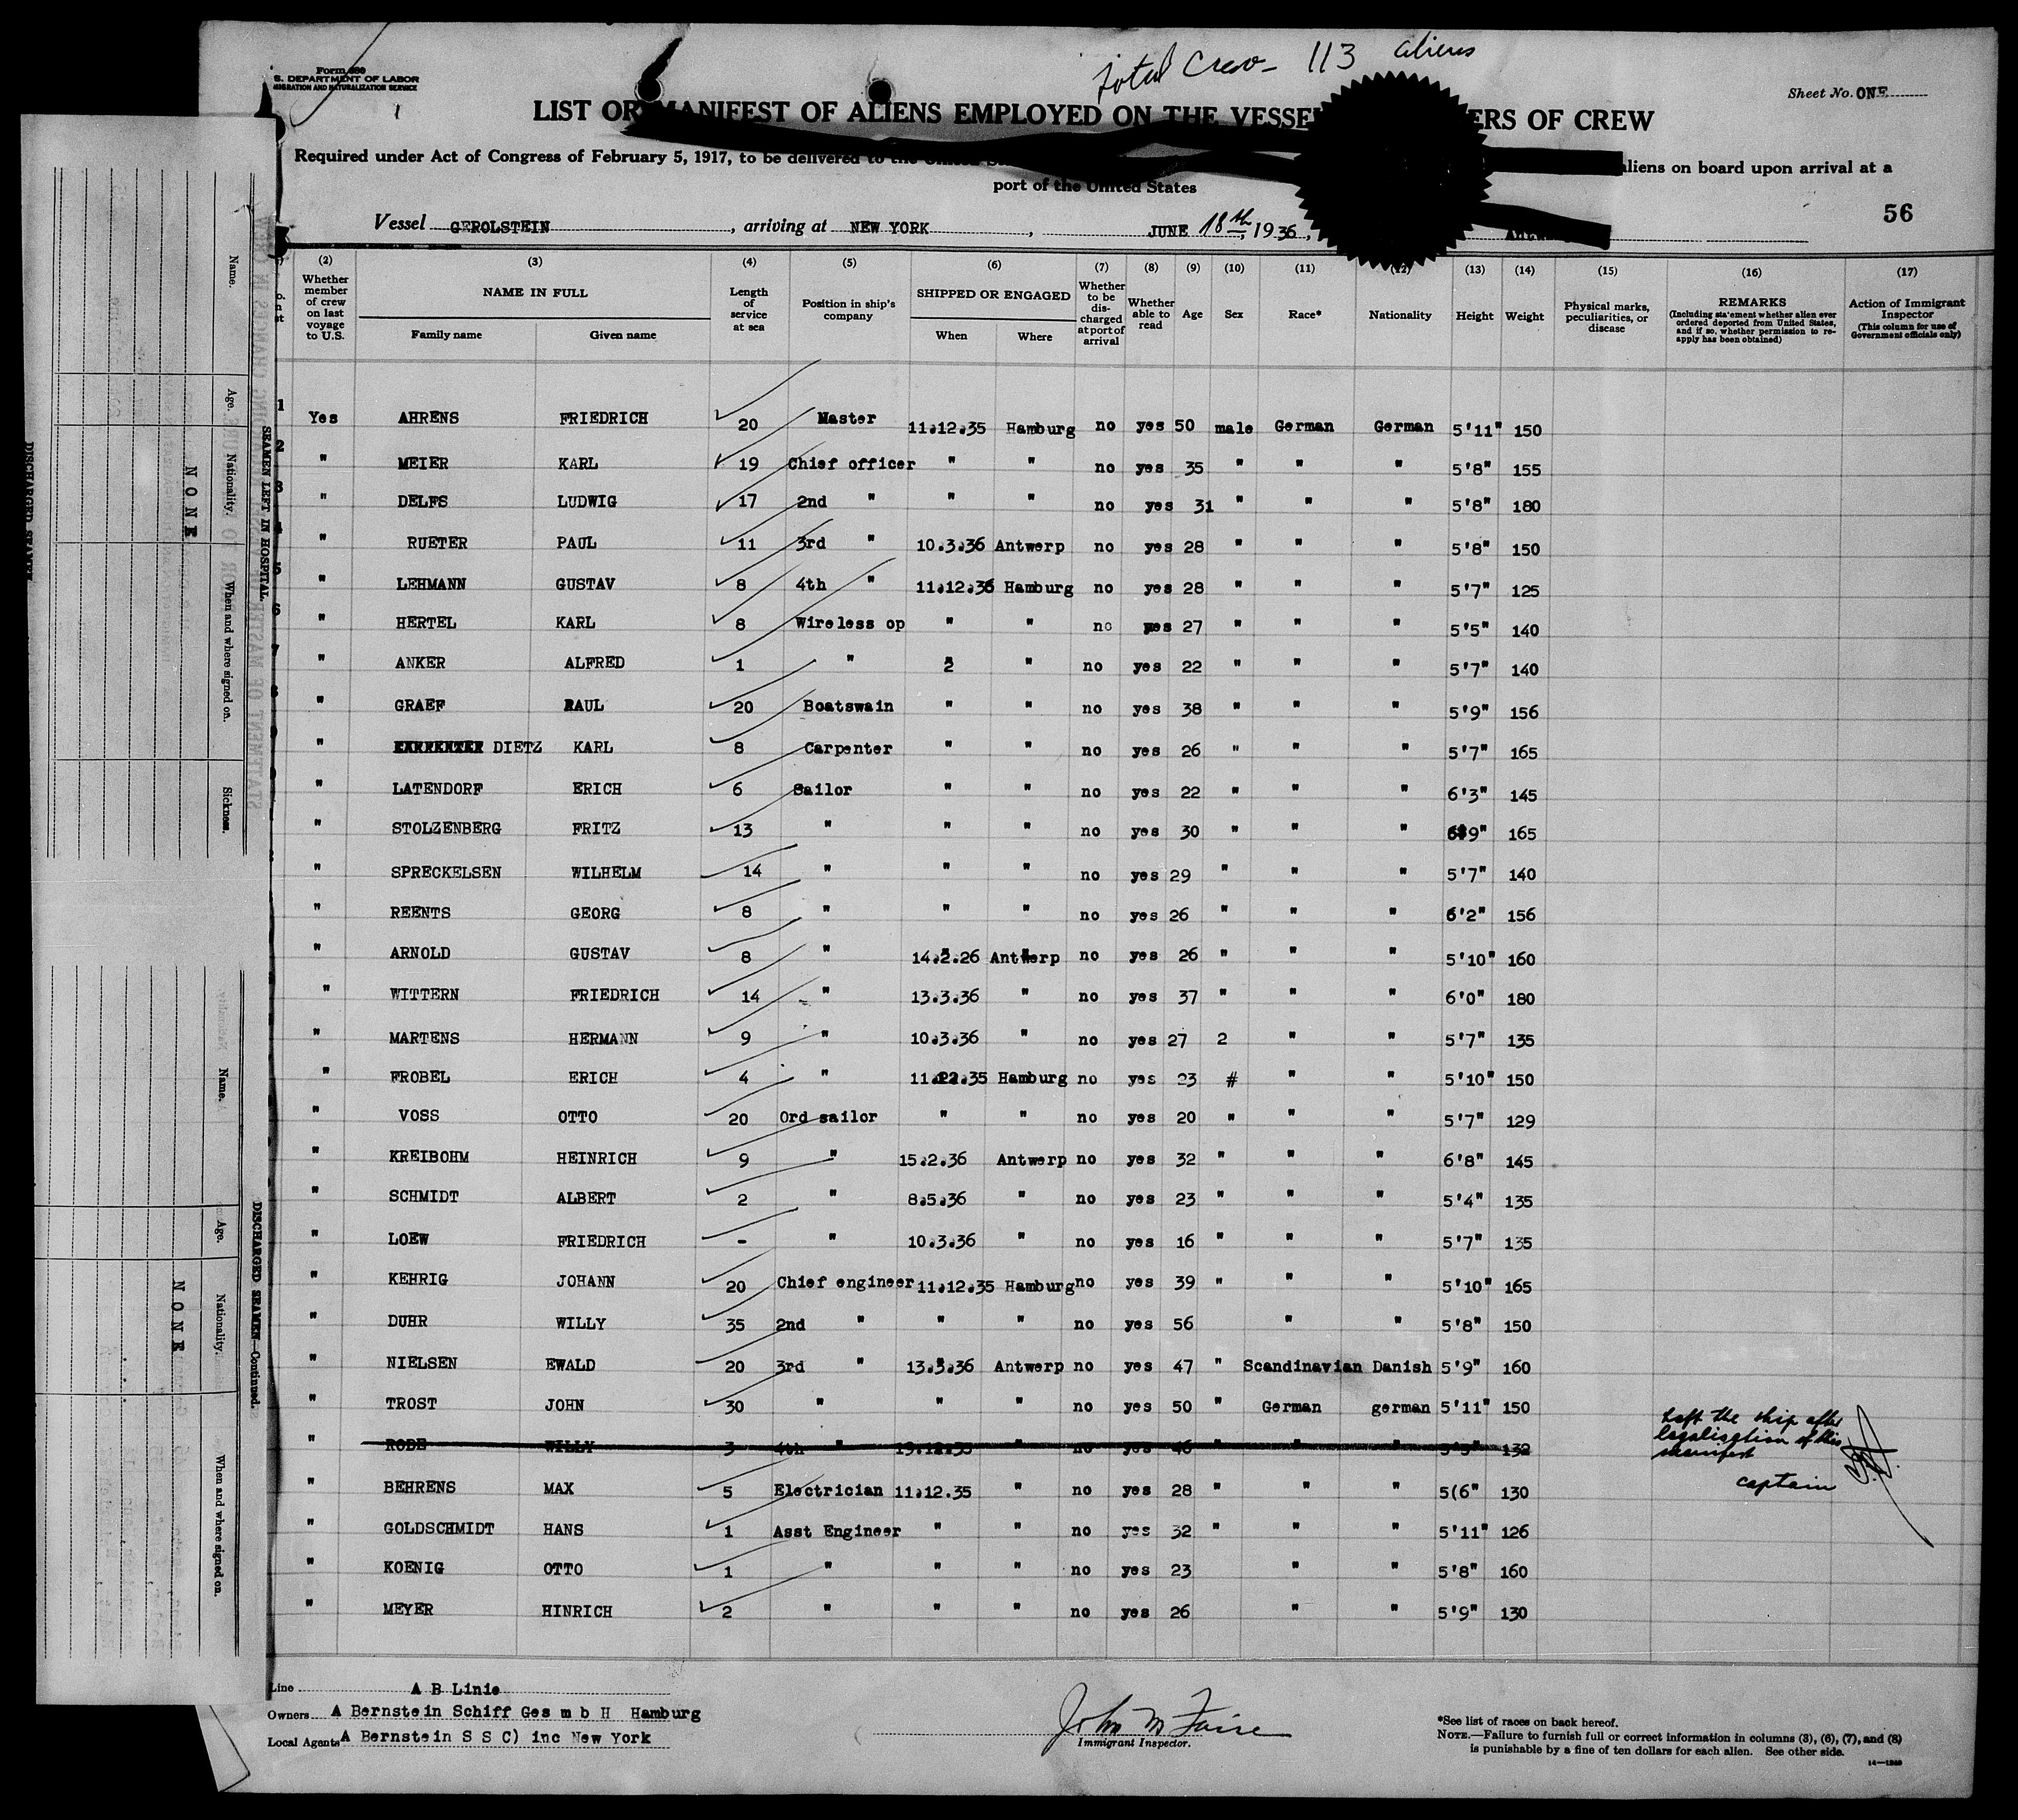 Total Crew - 113 aliens
Form 680
S. DEPARTMENT OF LABOR
MIGRATION AND NATURALIZATION SERVICE
Sheet No. ONE
LIST OR MANIFEST OF ALIENS EMPLOYED ON THE VESSEL ERS OF CREW
Required under Act of Congress of February 5, 1917, to be delivered to the United aliens on board upon arrival at a
port of the United States
56
Vessel GEROLSTEIN, arriving at NEW YORK, JUNE 18th, 1936,
(2) (3) (4) (5) (6) (7) (8) (9) (10) (11) (12) (13) (14) (15) (16) (17)
Whether member of crew on last voyage to U.S. NAME IN FULL Family name Given name Length of service at sea Position in ship's company SHIPPED OR ENGAGED When Where Whether to be discharged at port of arrival Whether able to read Age Sex Race* Nationality Height Weight Physical marks, peculiarities, or disease REMARKS (Including statement whether alien ever ordered deported from United States, and if so, whether permission to reapply has been obtained) Action of Immigrant Inspector (This column for use of Government officials only)
1 Yes AHRENS FRIEDRICH 20 Master 11.12.35 Hamburg no yes 50 male German German 5'11" 150
2 " MEIER KARL 19 Chief officer " " no yes 35 " " " 5'8" 155
3 " DELFS LUDWIG 17 2nd " " " no yes 31 " " " 5'8" 180
4 " RUETER PAUL 11 3rd " 10.3.36 Antwerp no yes 28 " " " 5'8" 150
5 " LEHMANN GUSTAV 8 4th " 11.12.36 Hamburg no yes 28 " " " 5'7" 125
6 " HERTEL KARL 8 Wireless op " " no yes 27 " " " 5'5" 140
7 " ANKER ALFRED 1 " 2 " no yes 22 " " " 5'7" 140
8 " GRAEF PAUL 20 Boatswain " " no yes 38 " " " 5'9" 156
" DIETZ KARL 8 Carpenter " " no yes 26 " " " 5'7" 165
" LATENDORF ERICH 6 Sailor " " no yes 22 " " " 6'3" 145
" STOLZENBERG FRITZ 13 " " " no yes 30 " " " 9" 165
" SPRECKELSEN WILHELM 14 " " " no yes 29 " " " 5'7" 140
" REENTS GEORG 8 " " " no yes 26 " " " 6'2" 156
" ARNOLD GUSTAV 8 " 14.2.26 Antwerp no yes 26 " " " 5'10" 160
" WITTERN FRIEDRICH 14 " 13.3.36 " no yes 37 " " " 6'0" 180
" MARTENS HERMANN 9 " 10.3.36 " no yes 27 2 " " 5'7" 135
" FROBEL ERICH 4 " 11.12.35 Hamburg no yes 23 # " " 5'10" 150
" VOSS OTTO 20 Ord sailor " " no yes 20 " " " 5'7" 129
" KREIBOHM HEINRICH 9 " 15.2.36 Antwerp no yes 32 " " " 6'8" 145
" SCHMIDT ALBERT 2 " 8.5.36 " no yes 23 " " " 5'4" 135
" LOEW FRIEDRICH - " 10.3.36 " no yes 16 " " " 5'7" 135
" KEHRIG JOHANN 20 Chief engineer 11.12.35 Hamburg no yes 39 " " " 5'10" 165
" DUHR WILLY 35 2nd " " " no yes 56 " " 5'8" 150
" NIELSEN EWALD 20 3rd " 13.3.36 Antwerp no yes 47 " Scandinavian Danish 5'9" 160
" TROST JOHN 30 " " " no yes 50 " German german 5'11" 150
" RODE WILLY 3 4th " " no yes 46 " " " 5'5" 132
Left the ship after
legalisation of this
manifest
captain
" BEHRENS MAX 5 Electrician 11.12.35 " no yes 28 " " " 5(6" 130
" GOLDSCHMIDT HANS 1 Asst Engineer " " no yes 32 " " " 5'11" 126
" KOENIG OTTO 1 " " " no yes 23 " " 5'8" 160
" MEYER HINRICH 2 " " " no yes 26 " " 5'9" 130
Line A B Linie
Owners A Bernstein Schiff Ges m b H Hamburg
Local Agents A Bernstein S S C) inc New York
Immigrant Inspector.
*See list of races on back hereof.
NOTE.—Failure to furnish full or correct information in columns (3), (6), (7), and (8)
is punishable by a fine of ten dollars for each alien. See other side.
SEAMEN LEFT IN HOSPITAL
Name. Age. Nationality. When and where signed on. Sickness.
NONE
DISCHARGED SEAMEN—Continued.
Name. Age. Nationality. When and where signed on.
NONE
DISCHARGED SEAMEN